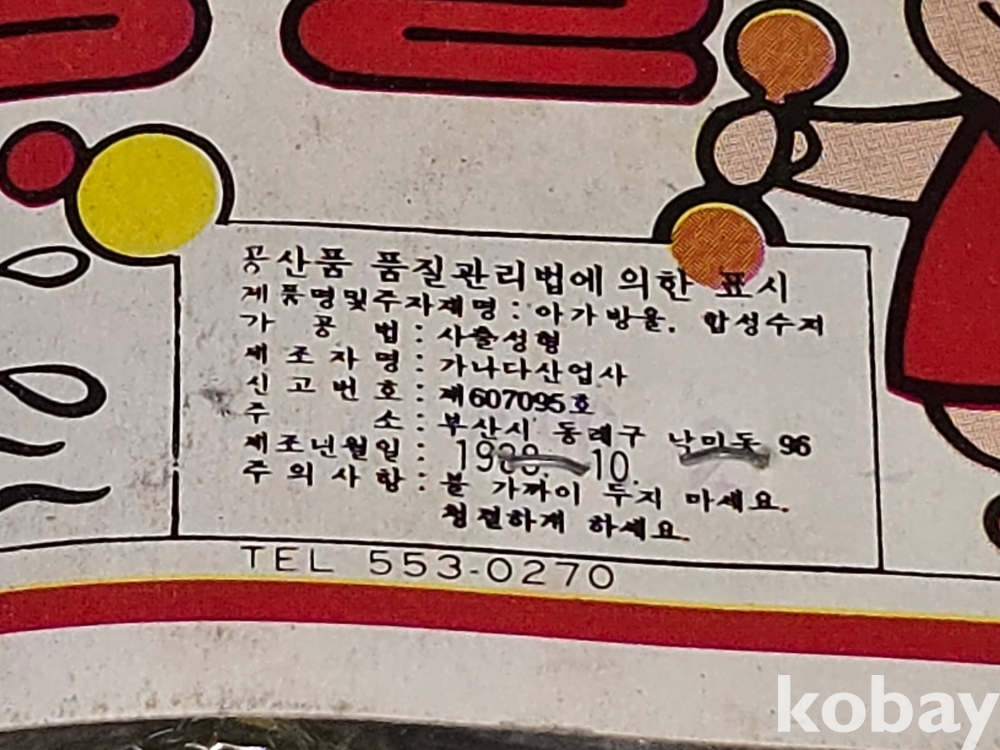 공산품 품질관리법에 의한 표시
제품명및주자재명 : 아가방울. 합성수지
가공법 : 사출성형
제조자명 : 가나다산업사
신고번호 : 제607095호
주소 : 부산시 동래구 낙민동 96
제조년월일 : 10.
주의사항 : 불 가까이 두지 마세요.
청결하게 하세요.
TEL 553-0270
kobay